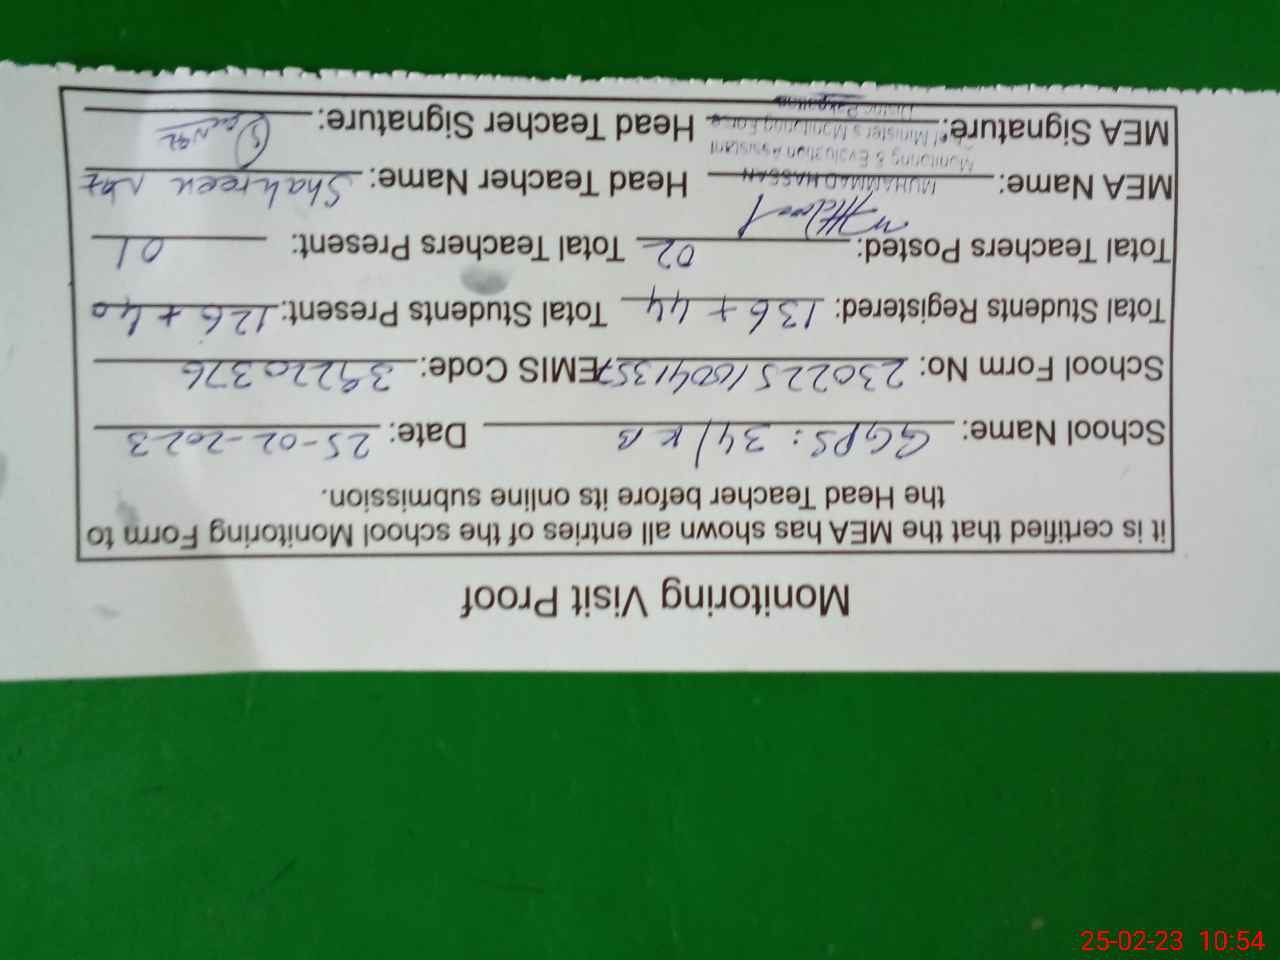 Monitoring Visit Proof
it is certified that the MEA has shown all entries of the school Monitoring Form to
the Head Teacher before its online submission.
School Name: GGPS: 34/KB Date: 25-02-2023
School Form No: 230225160041357 EMIS Code: 39220376
Total Students Registered: 136 + 44 Total Students Present: 126 + 40
Total Teachers Posted: 02 Total Teachers Present: 01
MEA Name: MUHAMMAD HASSAN Head Teacher Name: Shahreen Naz
Monitoring & Evaluation Assistant
Chief Minister's Monitoring Force
MEA Signature: Head Teacher Signature:
District Pakpattan
25-02-23 10:54